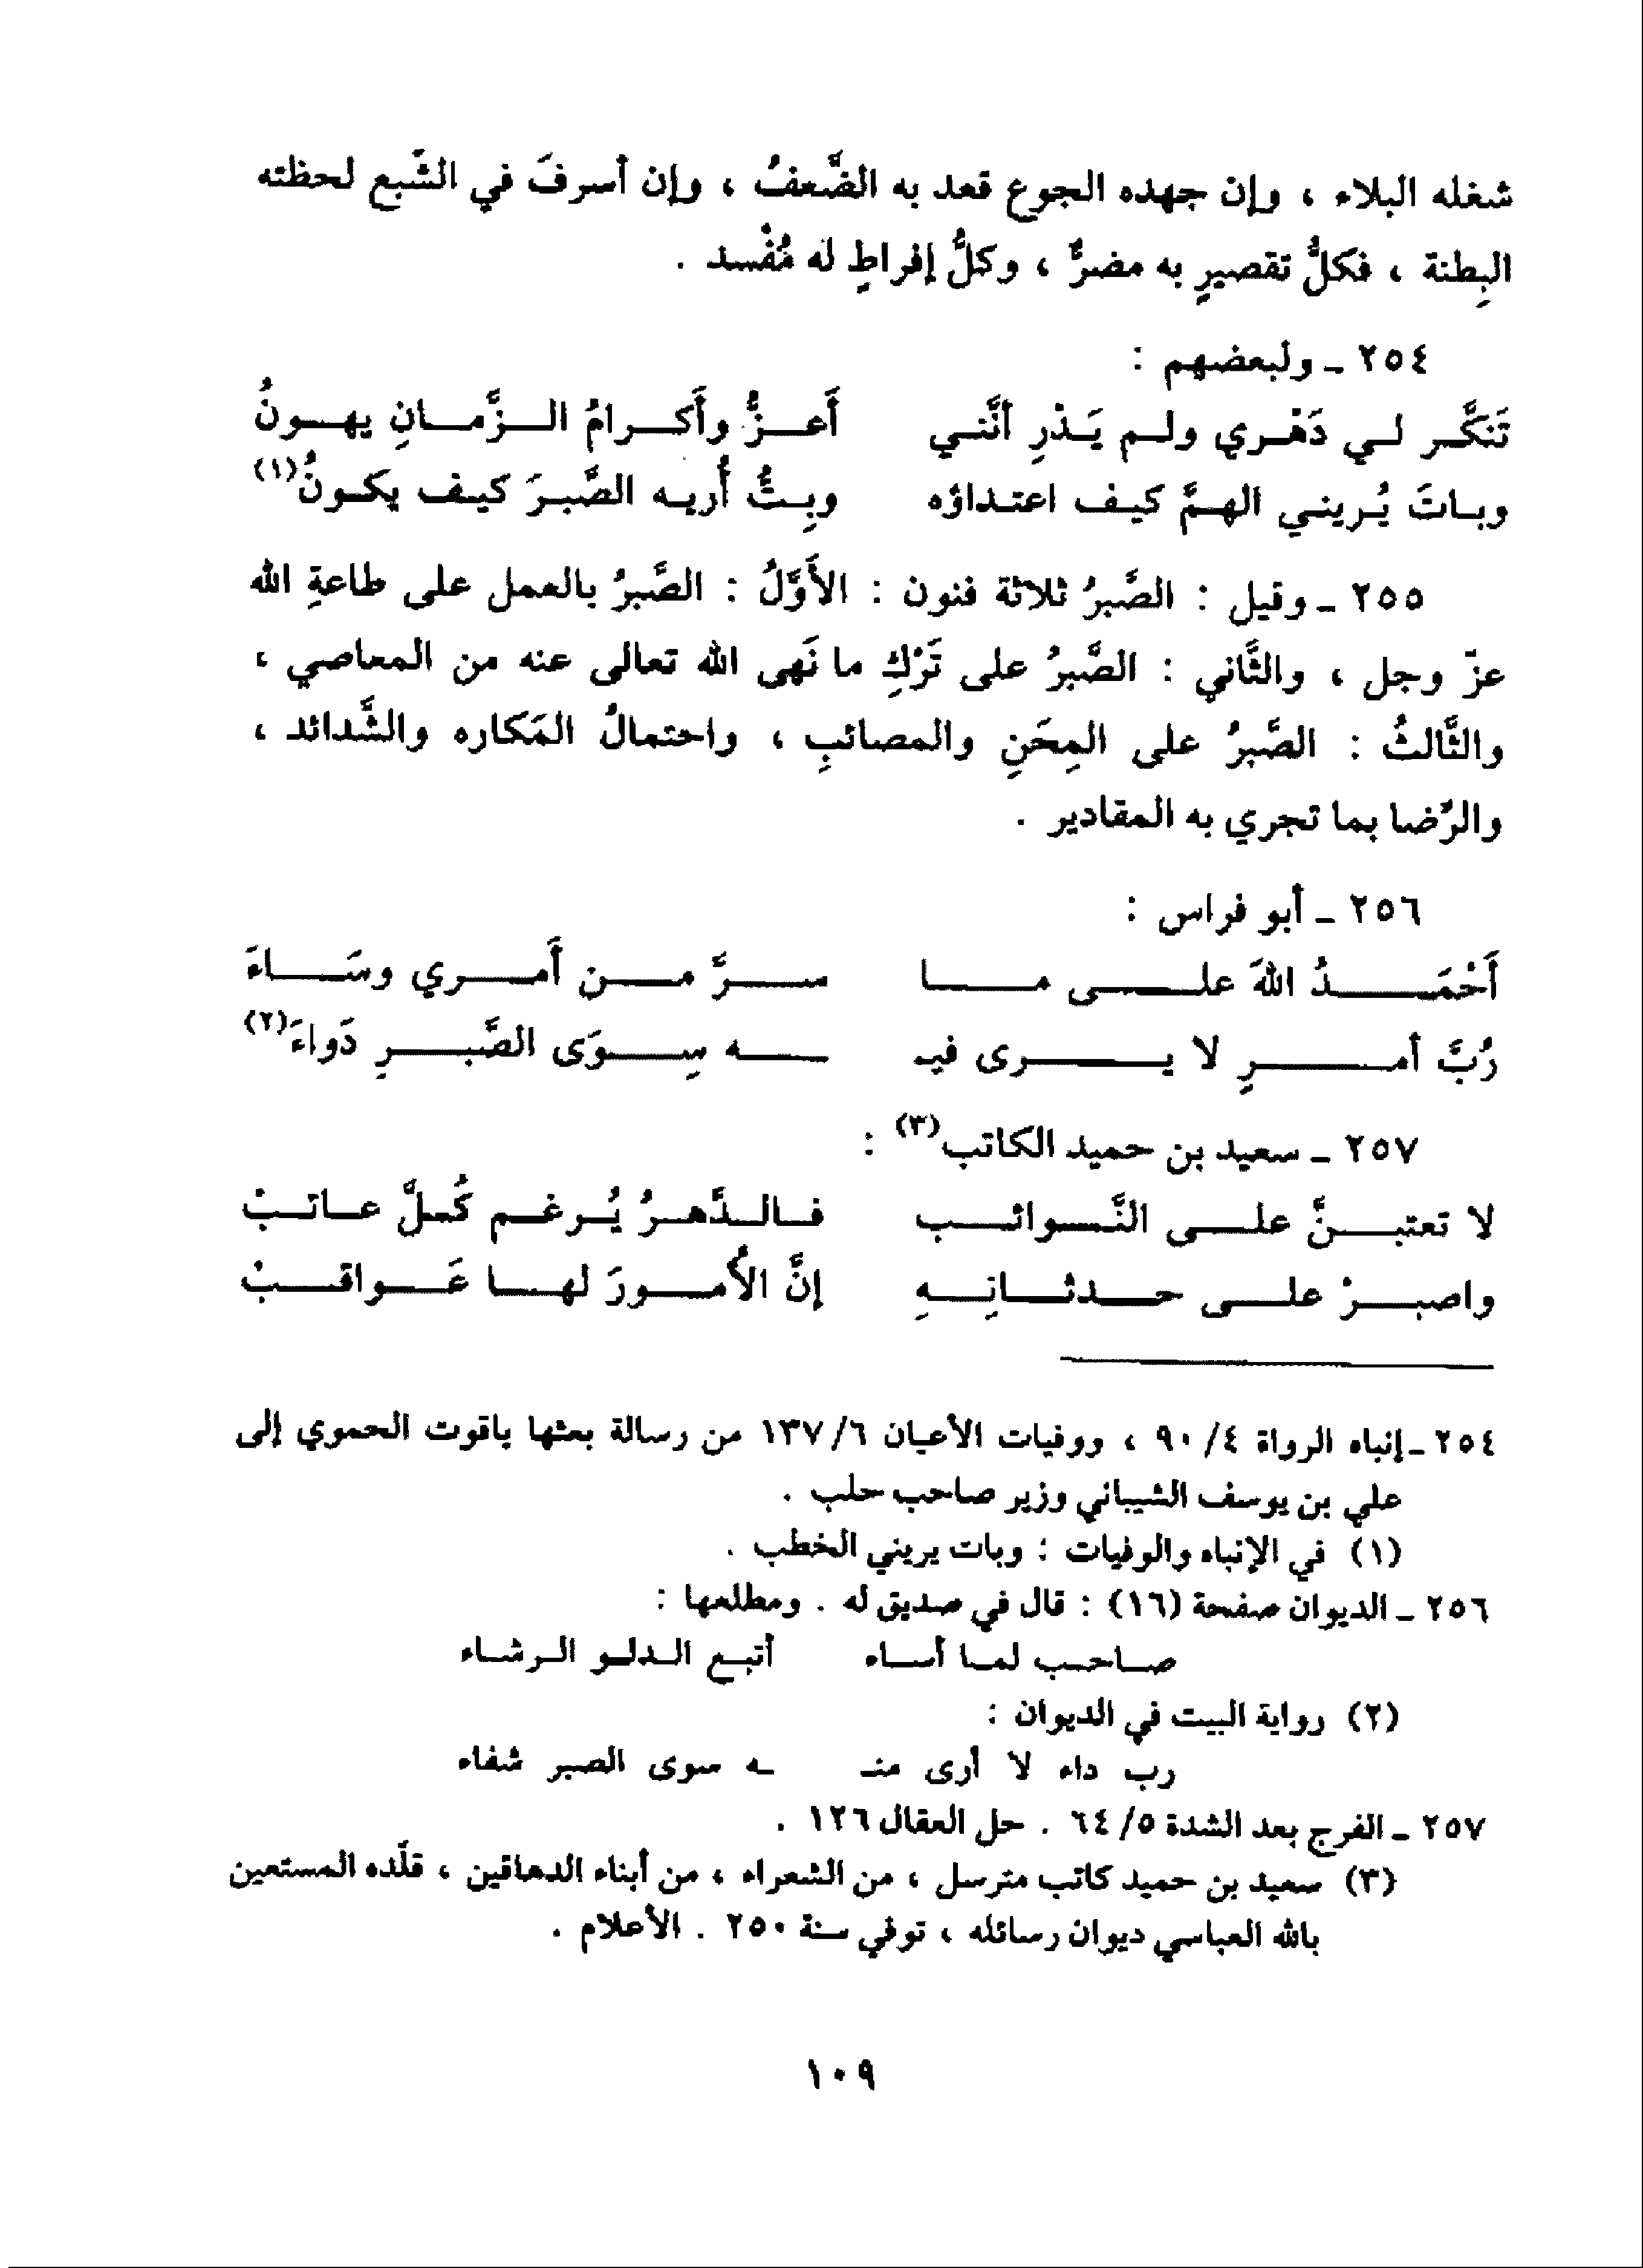 شغله البلاء ، وإن جهده الجوع قعد به الضَّعفُ ، وإن أسرفَ في الشّبع لحظته
البِطنة ، فكلُّ تقصيرٍ به مضرٌّ ، وكلُّ إفراطٍ له مُفْسد .
٢٥٤ ـ ولبعضهم :
تَنكَّر لي دَهْري ولم يَدْرِ أنَّني أَعزُّ وأَكرامُ الزَّمانِ يهونُ
وباتَ يُريني الهمَّ كيف اعتداؤه وبِتُّ أُريه الصَّبرَ كيف يكونُ(١)
٢٥٥ ـ وقيل : الصَّبرُ ثلاثة فنون : الأَوَّلُ : الصَّبرُ بالعمل على طاعةِ الله
عزّ وجل ، والثَّاني : الصَّبرُ على تَرْكِ ما نَهى الله تعالى عنه من المعاصي ،
والثَّالثُ : الصَّبرُ على المِحَنِ والمصائبِ ، واحتمالُ المَكاره والشَّدائد ،
والرِّضا بما تجري به المقادير .
٢٥٦ ـ أبو فراس :
أَحْمَدُ اللهَ على ما سرَّ من أَمري وسَاءَ
رُبَّ أمرٍ لا يرى فيـ ـه سِوَى الصَّبرِ دَواءَ(٢)
٢٥٧ ـ سعيد بن حميد الكاتب(٣) :
لا تعتبنَّ على النَّوائب فالدَّهرُ يُرغم كُلَّ عاتبْ
واصبرْ على حدثانِهِ إنَّ الأُمورَ لها عَواقبْ
٢٥٤ ـ إنباه الرواة ٤/ ٩٠ ، ووفيات الأعيان ٦/ ١٣٧ من رسالة بعثها ياقوت الحموي إلى
علي بن يوسف الشيباني وزير صاحب حلب .
(١) في الإنباه والوفيات : وبات يريني الخطب .
٢٥٦ ـ الديوان صفحة (١٦) : قال في صديق له . ومطلعها :
صاحب لما أساء أتبع الدلو الرشاء
(٢) رواية البيت في الديوان :
رب داء لا أرى منـ ـه سوى الصبر شفاء
٢٥٧ ـ الفرج بعد الشدة ٥/ ٦٤ . حل العقال ١٢٦ .
(٣) سعيد بن حميد كاتب مترسل ، من الشعراء ، من أبناء الدهاقين ، قلّده المستعين
بالله العباسي ديوان رسائله ، توفي سنة ٢٥٠ . الأعلام .
١٠٩